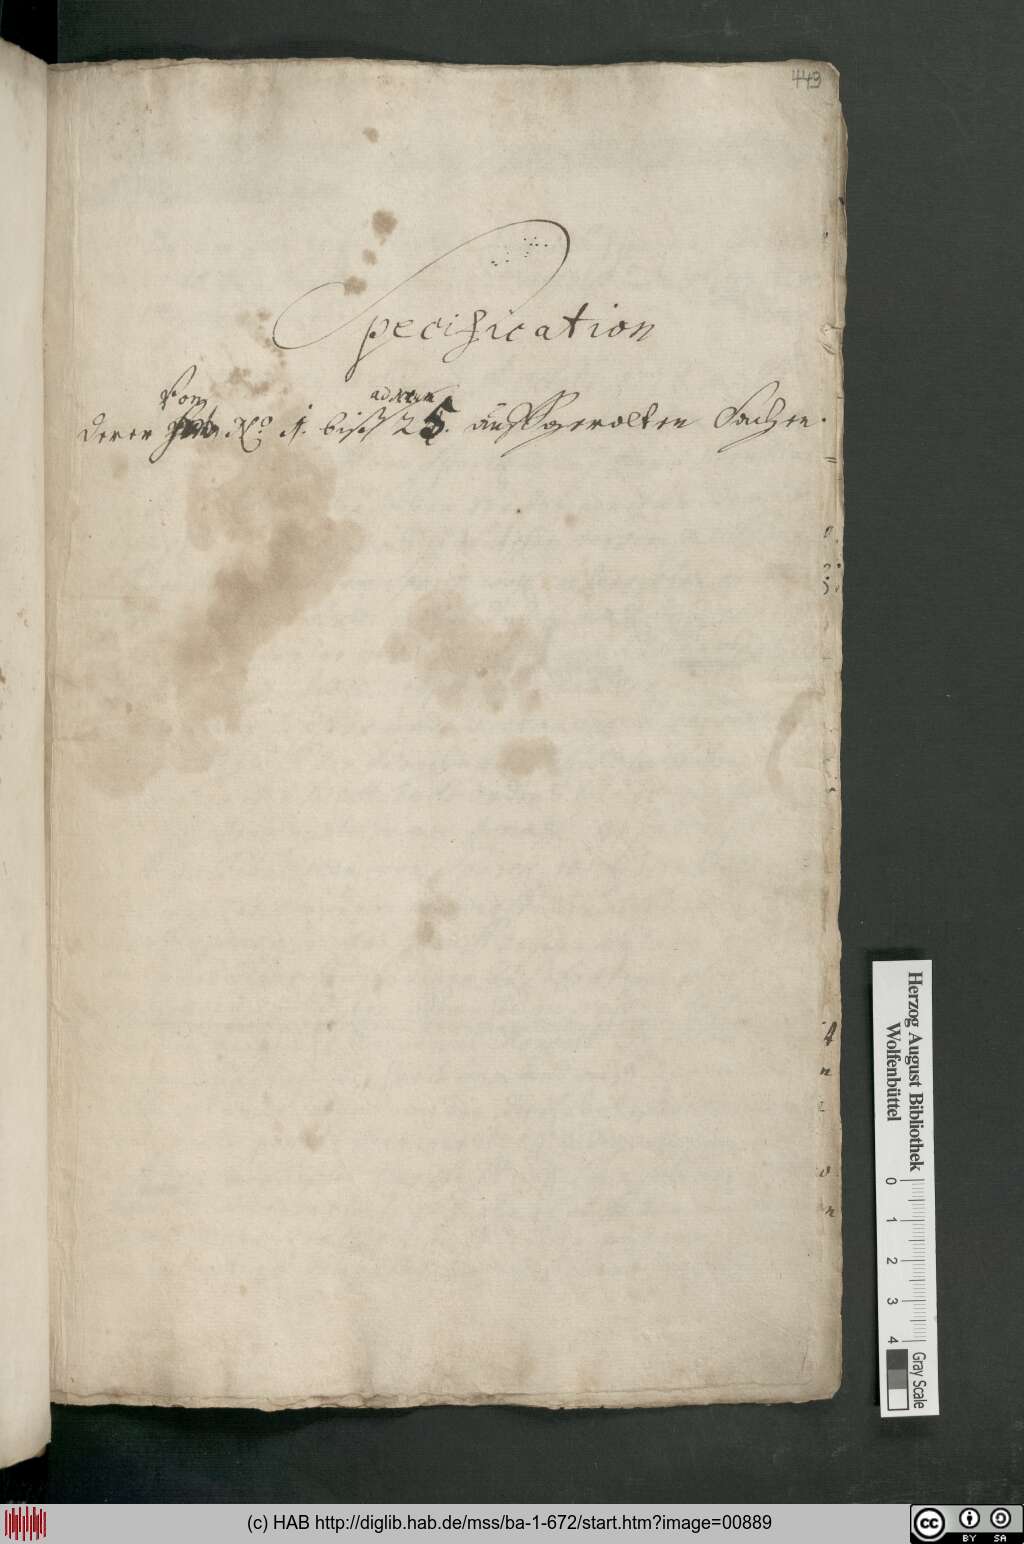 449
Specification
Von
ad Num
derer No 1. biß 25. außgerolten Sachen.
Herzog August Bibliothek
Wolfenbüttel
0 1 2 3 4
Gray Scale
(c) HAB http://diglib.hab.de/mss/ba-1-672/start.htm?image=00889
cc BY SA